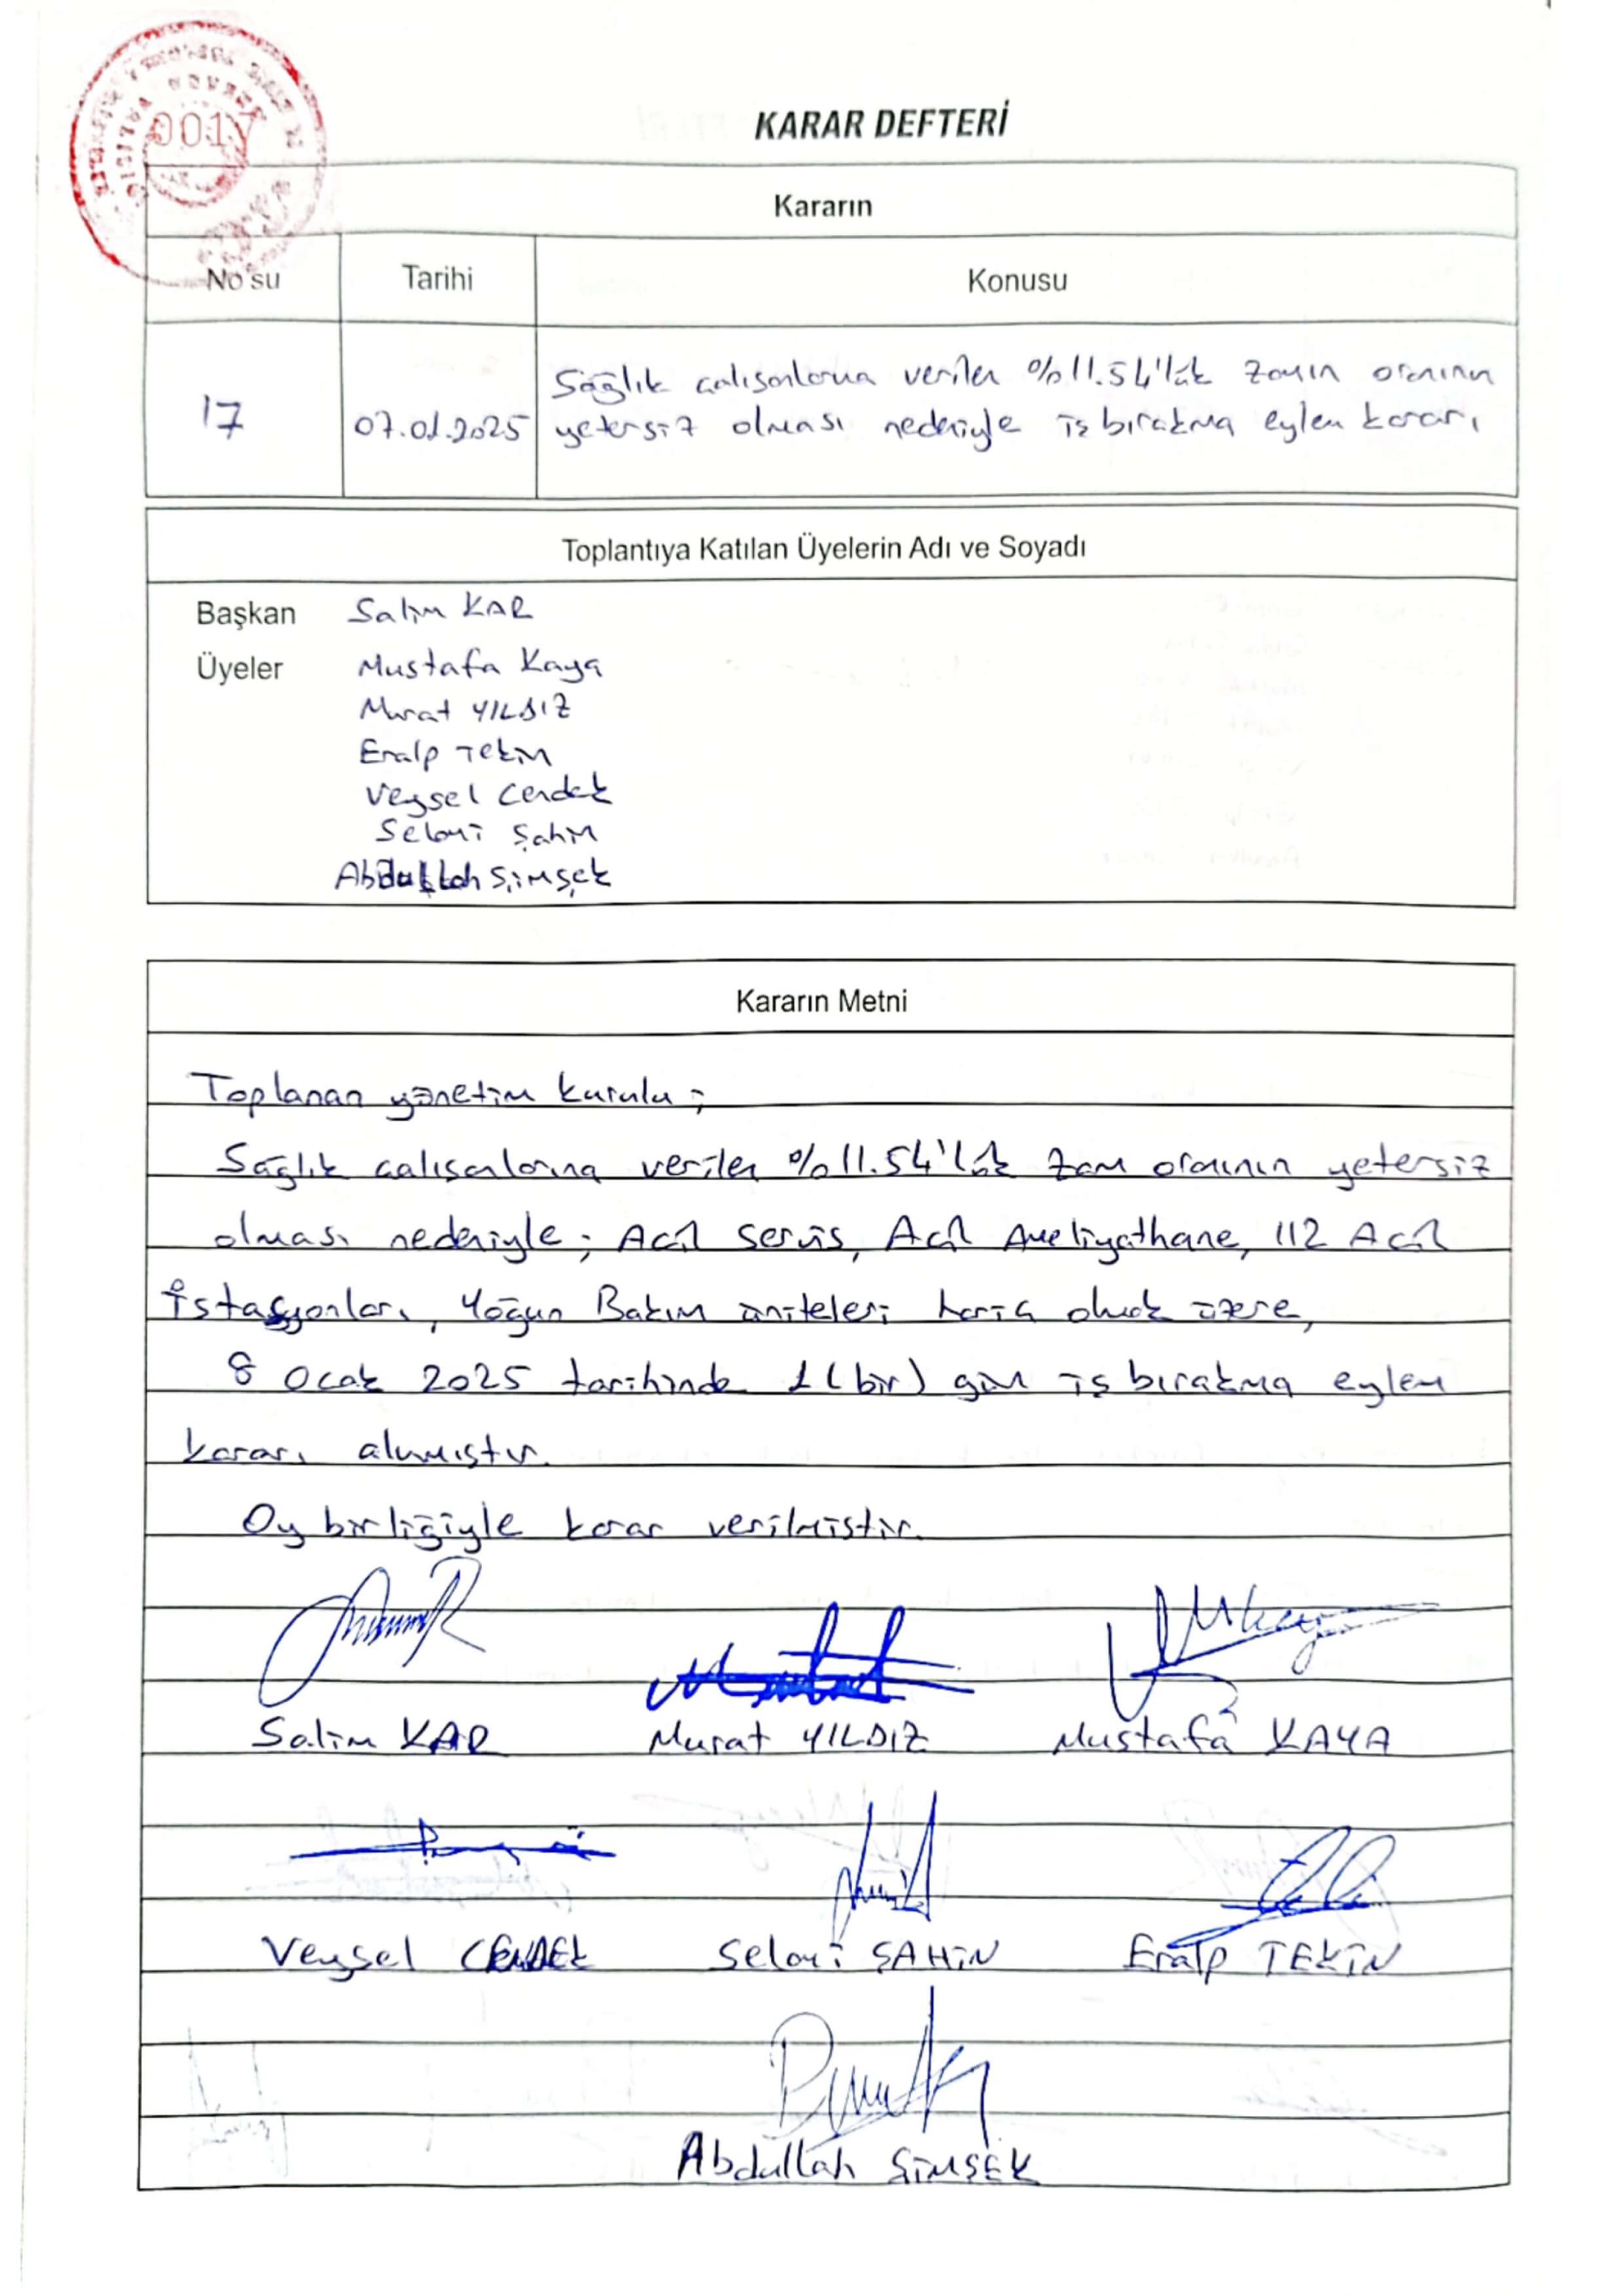 0017
KARAR DEFTERİ
Kararın
No'su Tarihi Konusu
17 07.01.2025
Sağlık çalışanlarına verilen %11.54'lük zamın oranının
yetersiz olması nedeniyle iş bırakma eylem kararı
Toplantıya Katılan Üyelerin Adı ve Soyadı
Başkan Salim KAR
Üyeler Mustafa Kaya
Murat YILDIZ
Eralp Tekin
Veysel Cendek
Selami Şahin
Abdullah Şimşek
Kararın Metni
Toplanan yönetim kurulu ;
Sağlık çalışanlarına verilen %11.54'lük zam oranının yetersiz
olması nedeniyle ; Acil servis, Acil Ameliyathane, 112 Acil
İstasyonları, Yoğun Bakım üniteleri hariç olmak üzere,
8 Ocak 2025 tarihinde 1 (bir) gün iş bırakma eylem
kararı alınmıştır.
Oy birliğiyle karar verilmiştir.
Salim KAR Murat YILDIZ Mustafa KAYA
Veysel CENDEK Selami ŞAHİN Eralp TEKİN
Abdullah ŞİMŞEK